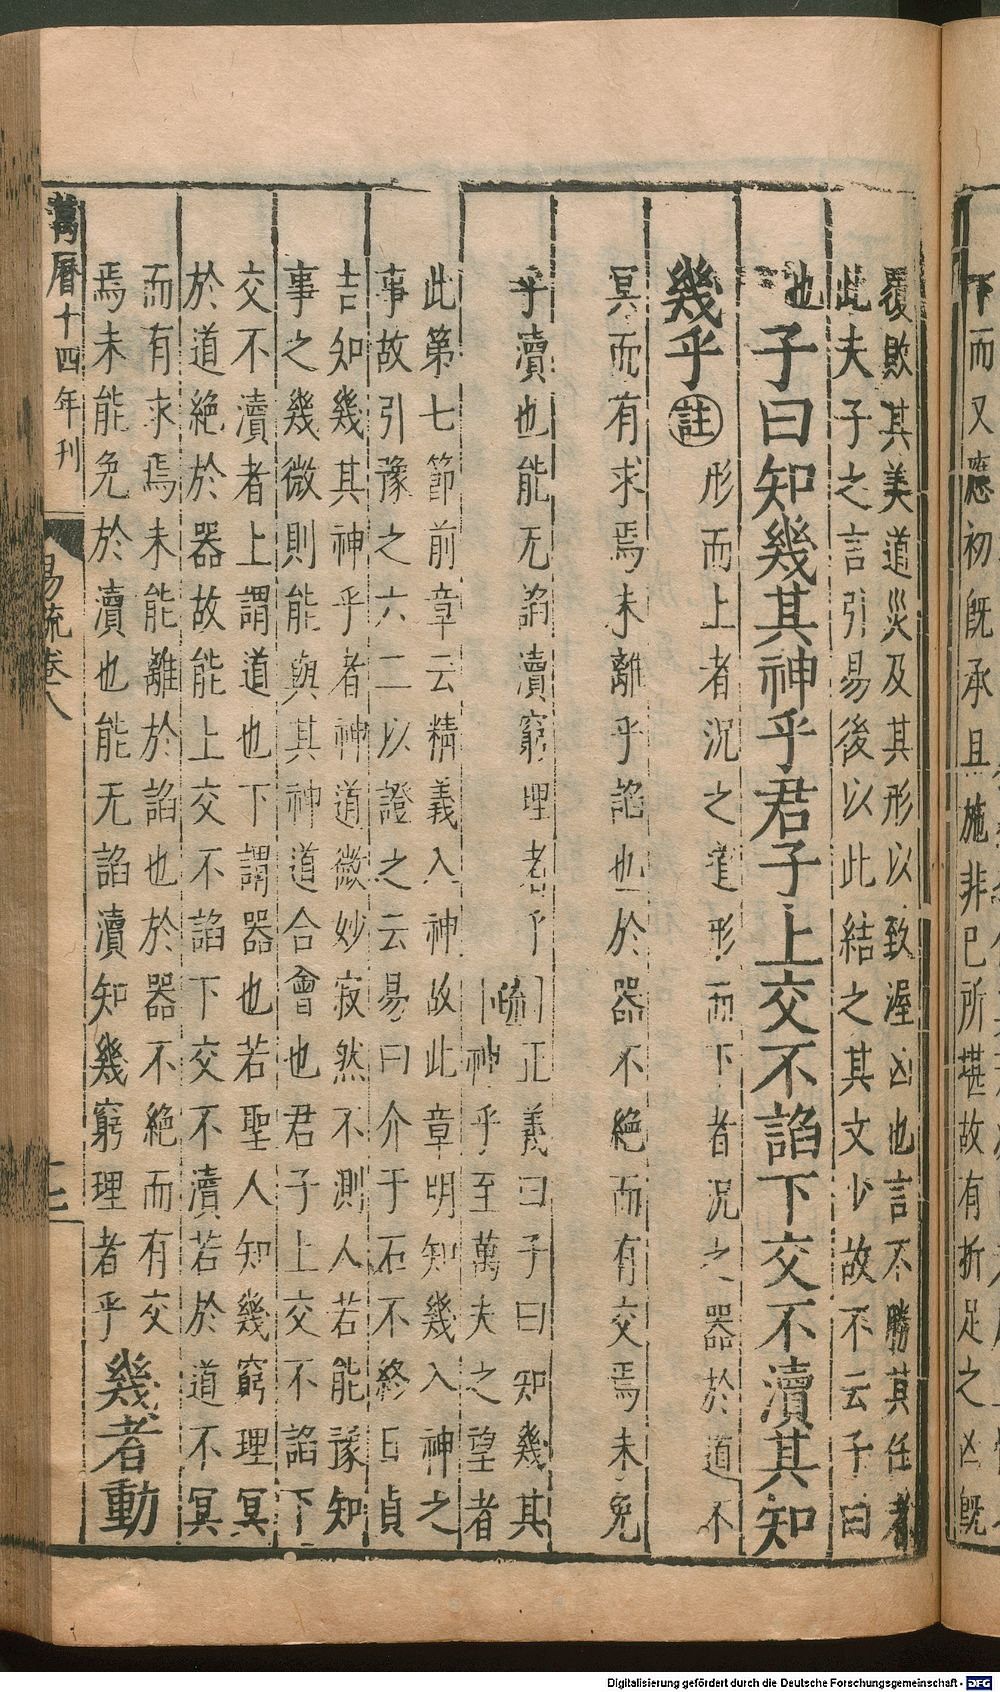 下而又應初既承且施非已所堪故有折足之凶既
覆敗其美道災及其形以致渥凶也言不勝其任者
此夫子之言引易後以此結之其文少故不云子曰
也子曰知幾其神乎君子上交不諂下交不瀆其知
幾乎
註
形而上者況之道形而下者況之器於道不
冥而有求焉未離乎諂也於器不絶而有交焉未免
乎瀆也能无諂瀆窮理者乎
疏
正義曰子曰知幾其
神乎至萬夫之望者
此第七節前章云精義入神故此章明知幾入神之
事故引豫之六二以證之云易曰介于石不終日貞
吉知幾其神乎者神道微妙寂然不測人若能豫知
事之幾微則能與其神道合會也君子上交不諂下
交不瀆者上謂道也下謂器也若聖人知幾窮理冥
於道絶於器故能上交不諂下交不瀆若於道不冥
而有求焉未能離於諂也於器不絶而有交
焉未能免於瀆也能无諂瀆知幾窮理者乎
幾者動
萬曆十四年刊
易疏卷八
十七
Digitalisierung gefördert durch die Deutsche Forschungsgemeinschaft - DFG